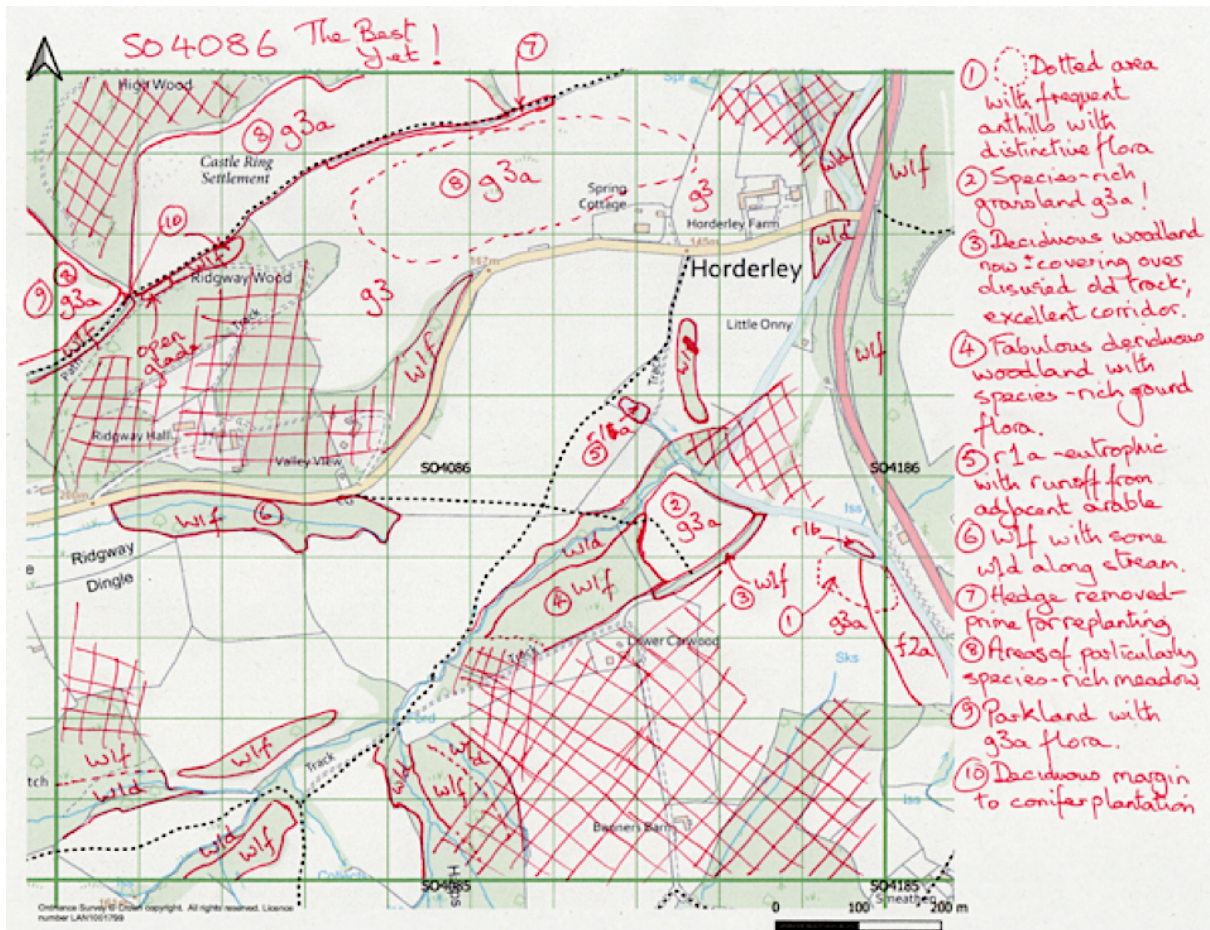 SO4086 The Best
Yet!
⑦
High Wood
⑧ g3a
Castle Ring
Settlement
⑩
⑧ g3a
Spring
Cottage
g3
Horderley Farm
145m
wld
wlf
wld
Horderley
wlf
Ridgway Wood
⑨ ⑧
g3a
wlf
Path
open
glade
Track
g3
167m
wlf
Little Onny
wlf
Track
⑤
Ridgway Hall
Valley View
SO4086
SO4186
200m
wlf ⑥
Ridgway
Dingle
②
g3a
Iss
r1b
wld
④ wlf
③ wlf
①
g3a
f2a
Track
Lower Carwood
Sks
Ford
wlf
wld
tch
wlf
Track
wld
wld
wlf
wld
wlf
Banners Barn
Iss
Iss
Collects
SO4085
SO4185
Smeathen
Ordnance Survey © Crown copyright. All rights reserved. Licence
number LAN1001799
0 100 200 m
① Dotted area
with frequent
anthills with
distinctive flora
② Species-rich
grassland g3a!
③ Deciduous woodland
now ± covering over
disused old track;
excellent corridor.
④ Fabulous deciduous
woodland with
species-rich ground
flora.
⑤ r1a - eutrophic
with runoff from
adjacent arable
⑥ Wlf with some
wld along stream.
⑦ Hedge removed-
prime for replanting
⑧ Areas of particularly
species-rich meadow.
⑨ Parkland with
g3a flora.
⑩ Deciduous margin
to conifer plantation